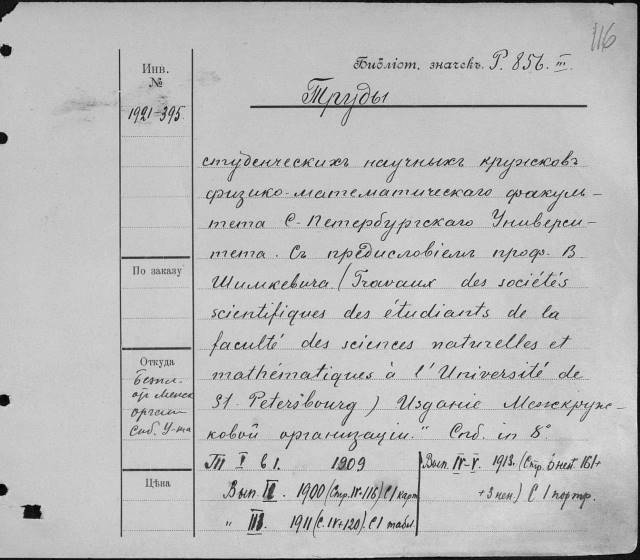 116
Библіот. значекъ P. 856. III.
Инв.
№
1921-395
Труды
студенческихъ научныхъ кружковъ
физико-математическаго факуль-
тета С-Петербургскаго Универси-
тета. Съ предисловіемъ проф. В
Шимкевича. (Travaux des sociétés
scientifiques des étudiants de la
faculté des sciences naturelles et
mathématiques à l'Université de
St. Petersbourg) Изданіе Межкруж-
ковой организаціи." Спб. in 8°.
По заказу
Откуда
Безпл.
от Межк
орган
Спб. У-та
Цѣна
Т I в 1. 1909
Вып. II. 1900 (Стр. IV+116) С 1 карт
" III. 1911 (С. IV+120). С 1 табл.
Вып. IV-V. 1913. (Стр. 161+
+3 нен.) С 1 портр.